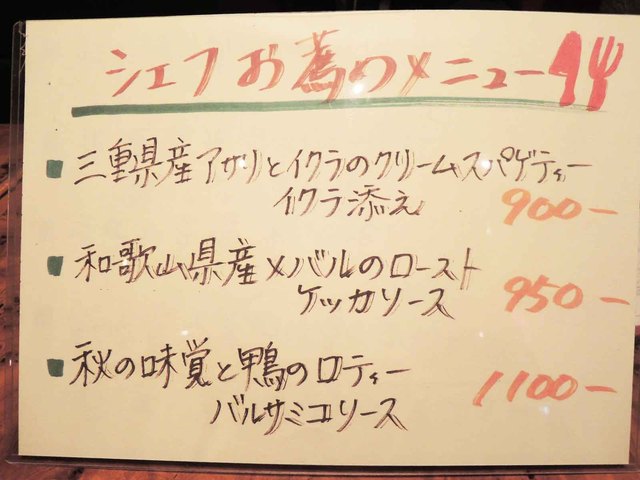 シェフお薦めメニュー
■三重県産アサリとイクラのクリームスパゲティー
イクラ添え 900-
■和歌山県産メバルのロースト
ケッカソース 950-
■秋の味覚と鴨のロティー
バルサミコソース 1100-